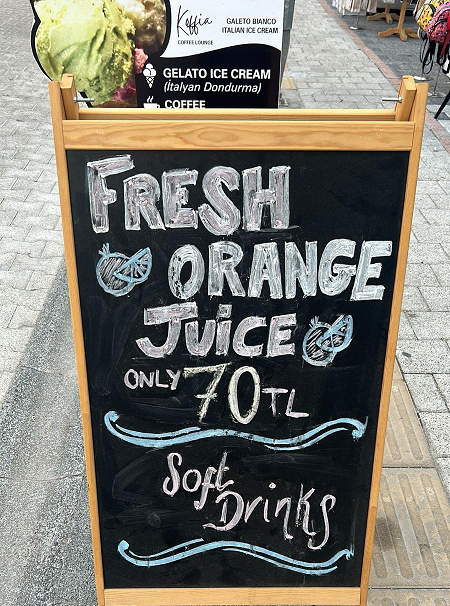 Koffia
COFFEE LOUNGE
GALETO BIANCO
ITALIAN ICE CREAM
GELATO ICE CREAM
(İtalyan Dondurma)
COFFEE
FRESH
ORANGE
JUiCE
ONLY 70 TL
Soft
Drinks